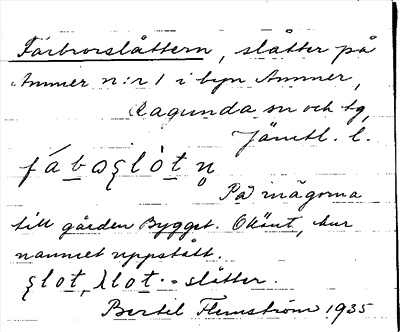 Farbrorslåttern, slåtter på
Ammer n:r 1 i byn Ammer,
Ragunda sn och tg,
Jämtl. l.
fáboʂlòtn̥
På mägorna
till gården Bygget. Okänt, hur
namnet uppstått.
ʂlot, λlot = slåtter.
Bertel Flemström 1935